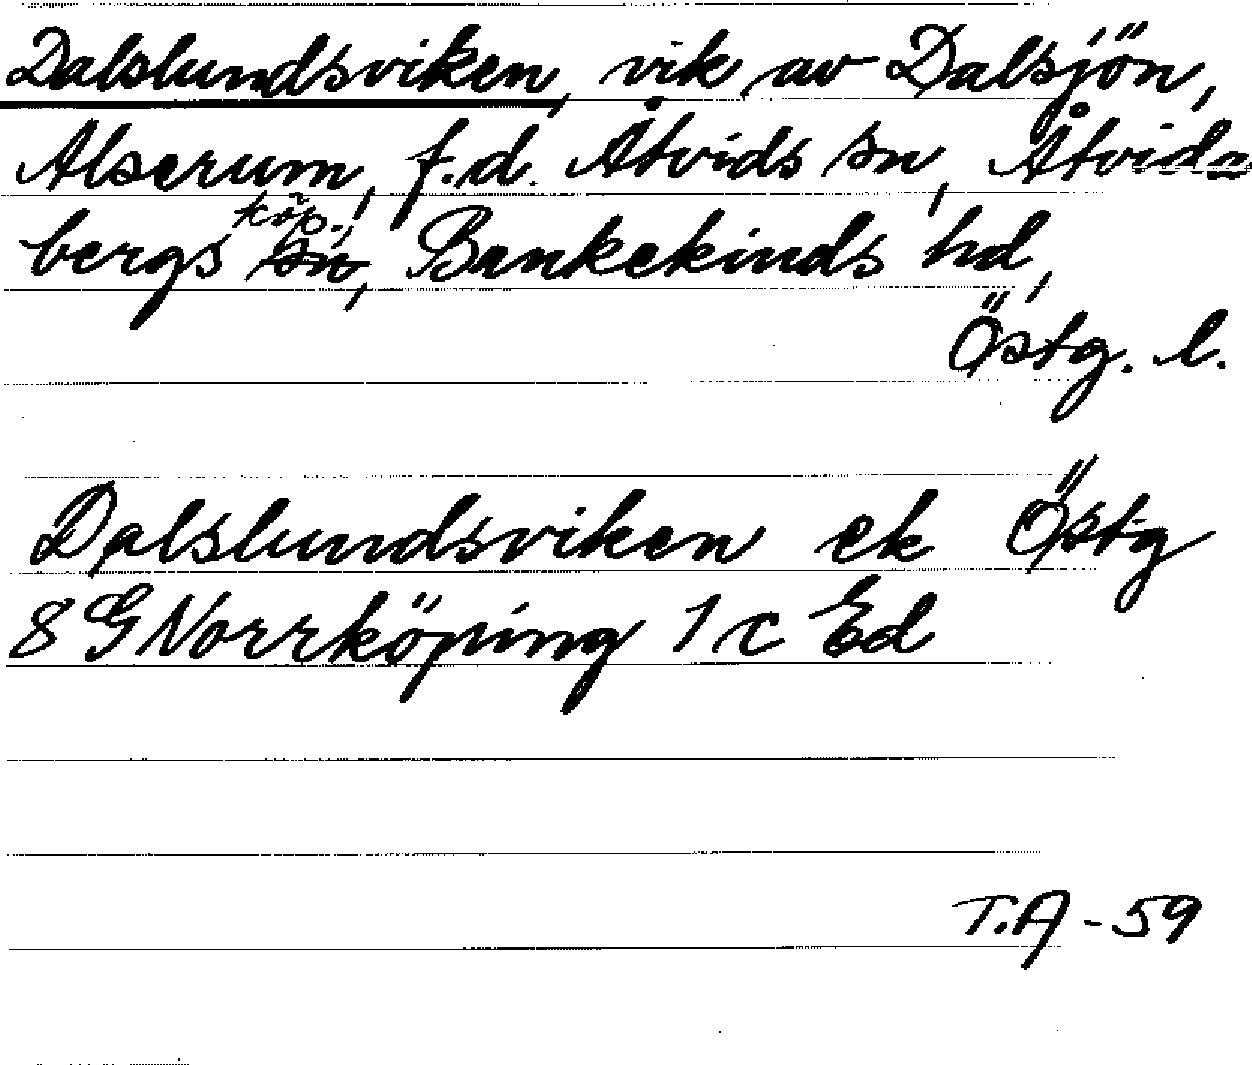 Dalslundsviken, vik av Dalsjön,
Alserum, f.d. Åtvids sn, Åtvids
köp.,
bergs sn, Bankekinds hd,
Östg. l.
Dalslundsviken ek Östg
8 G Norrköping 1 c Ed
T.A - 59